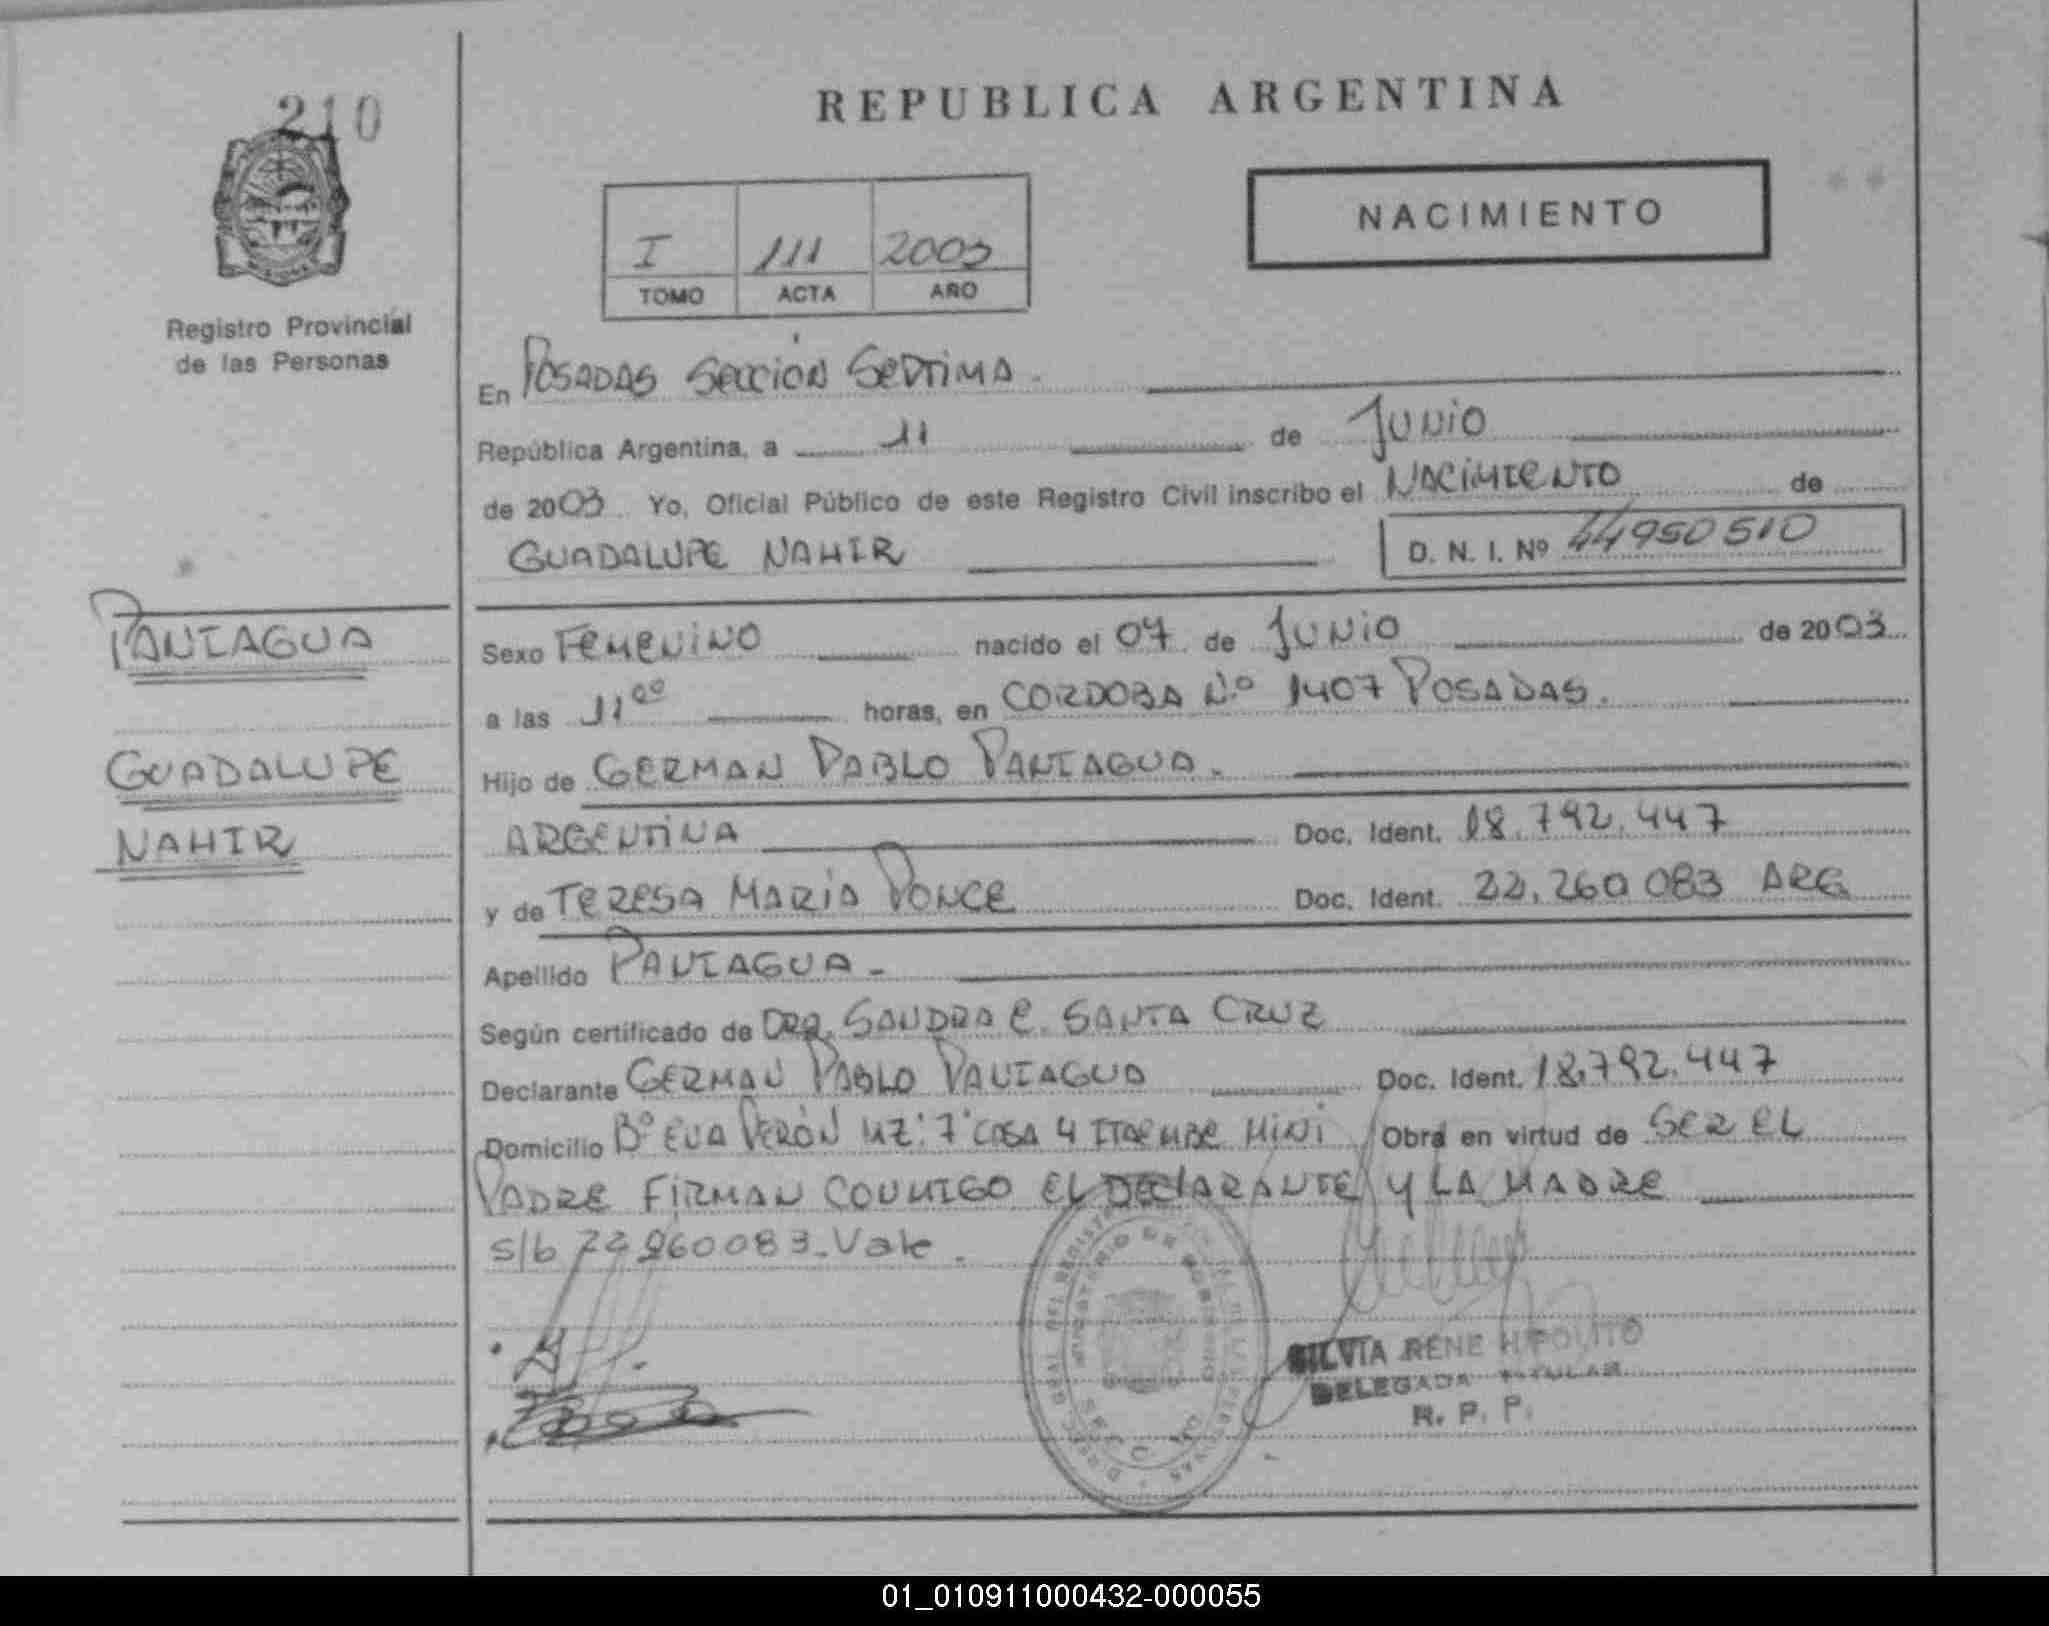 210
REPUBLICA ARGENTINA
NACIMIENTO
I 111 2003
TOMO ACTA AÑO
Registro Provincial
de las Personas
En POSADAS SECCIÓN SEPTIMA.
República Argentina, a 11 de JUNIO
de 2003 Yo, Oficial Público de este Registro Civil inscribo el NACIMIENTO de
GUADALUPE NAHIR D. N. I. Nº 44950510
PANIAGUA
GUADALUPE
NAHIR
Sexo FEMENINO nacido el 07 de JUNIO de 2003
a las 11 00 horas, en CORDOBA N.º 1407 POSADAS.
Hijo de GERMAN PABLO PANIAGUA.
ARGENTINA Doc. Ident. 18.792.447
y de TERESA MARIA PONCE Doc. Ident. 22.260083 ARG
Apellido PANIAGUA -
Según certificado de DRA. SANDRA E. SANTA CRUZ
Declarante GERMAN PABLO PANIAGUA Doc. Ident. 18.792.447
Domicilio Bº EVA PERÓN MZ: 7 CASA 4 ITAEMBE MINI Obra en virtud de SER EL
PADRE FIRMAN CONMIGO EL DECLARANTE Y LA MADRE
s/b 22260083. Vale.
SILVIA RENE HIPOLITO
DELEGADA TITULAR
R. P. P.
01_010911000432-000055